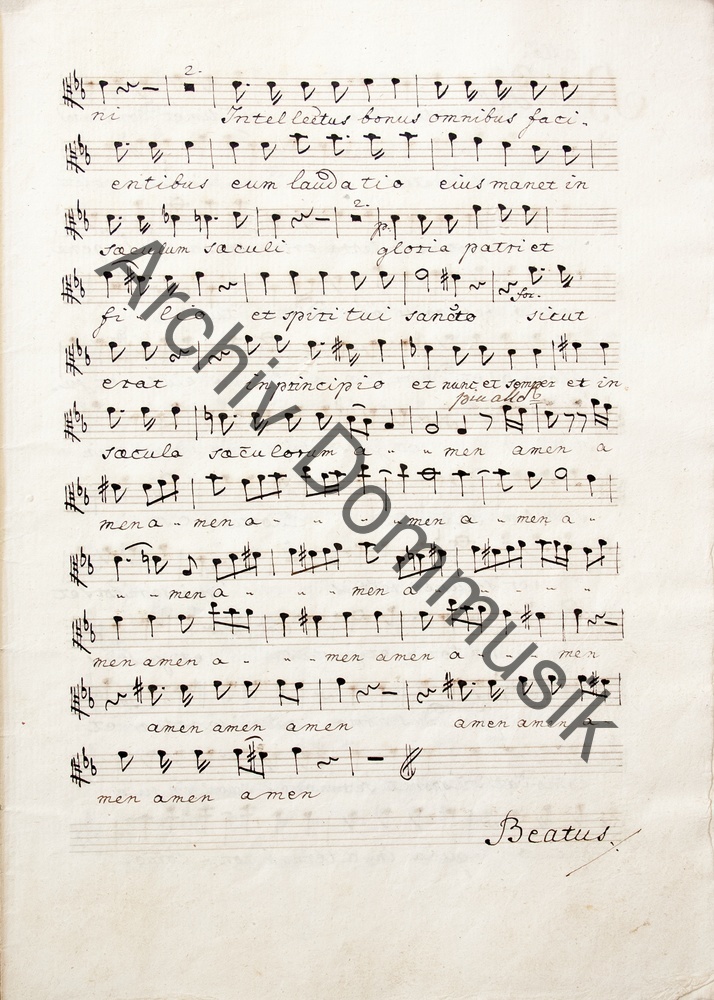 2.
ni Intellectus bonus omnibus faci-
entibus eum laudatio eius manet in
2.
sæculum sæculi p: gloria patri et
filio et spiritui sancto for: sicut
erat in principio et nunc et semper et in
piu allo
sæcula sæculorum a - - men amen a
men a - men a - - - men a - men a -
- - men a - - - men a - - - - -
men amen a - - - men amen a - - men
amen amen amen amen amen a
men amen amen
Beatus.
Archiv Dommusik